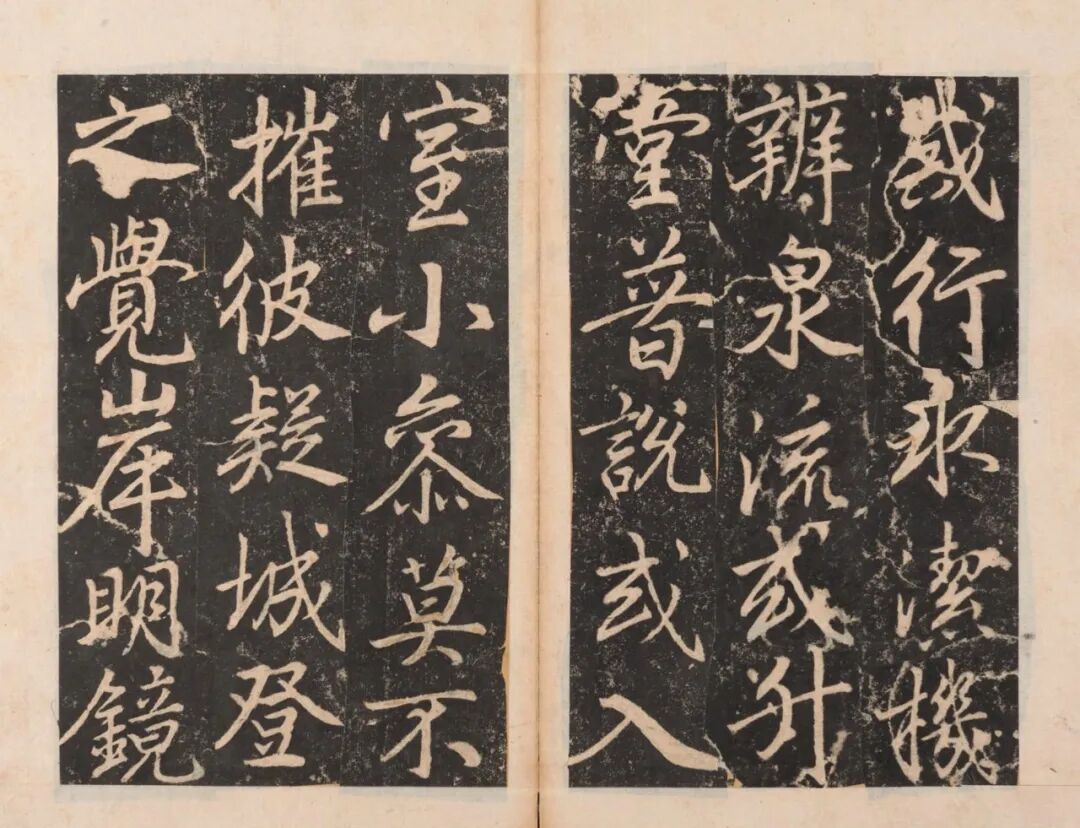 戒行氷潔機
辯泉流或升
堂普說或入
室小叅莫不
摧彼疑城登
之覺岸明鏡